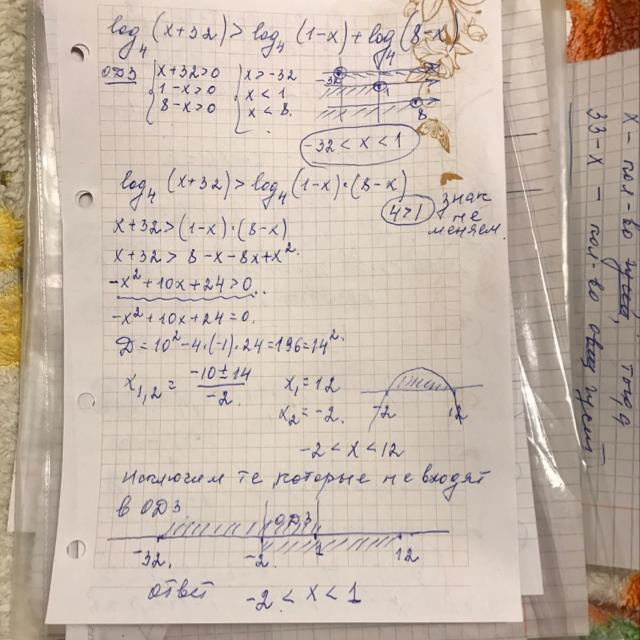 log₄ (x+32) > log₄ (1-x) + log₄ (8-x)
ОДЗ { x+32>0 { x>-32
1-x>0 x<1
8-x>0 x<8.
-32
1
8
-32 < x < 1
log₄ (x+32) > log₄ (1-x)·(8-x)
4>1 знак
не
меняем.
x+32>(1-x)·(8-x)
x+32 > 8-x-8x+x².
-x²+10x+24>0.
-x²+10x+24=0.
D=10²-4·(-1)·24=196=14².
x₁,₂ = (-10±14)/(-2) x₁=12
x₂=-2.
-2 12
-2 < x < 12
Исключим те которые не входят
в ОДЗ
ОДЗ
-32 -2 1 12
ответ -2 < x < 1
x - кол-во гусей, тогда
33-x - кол-во